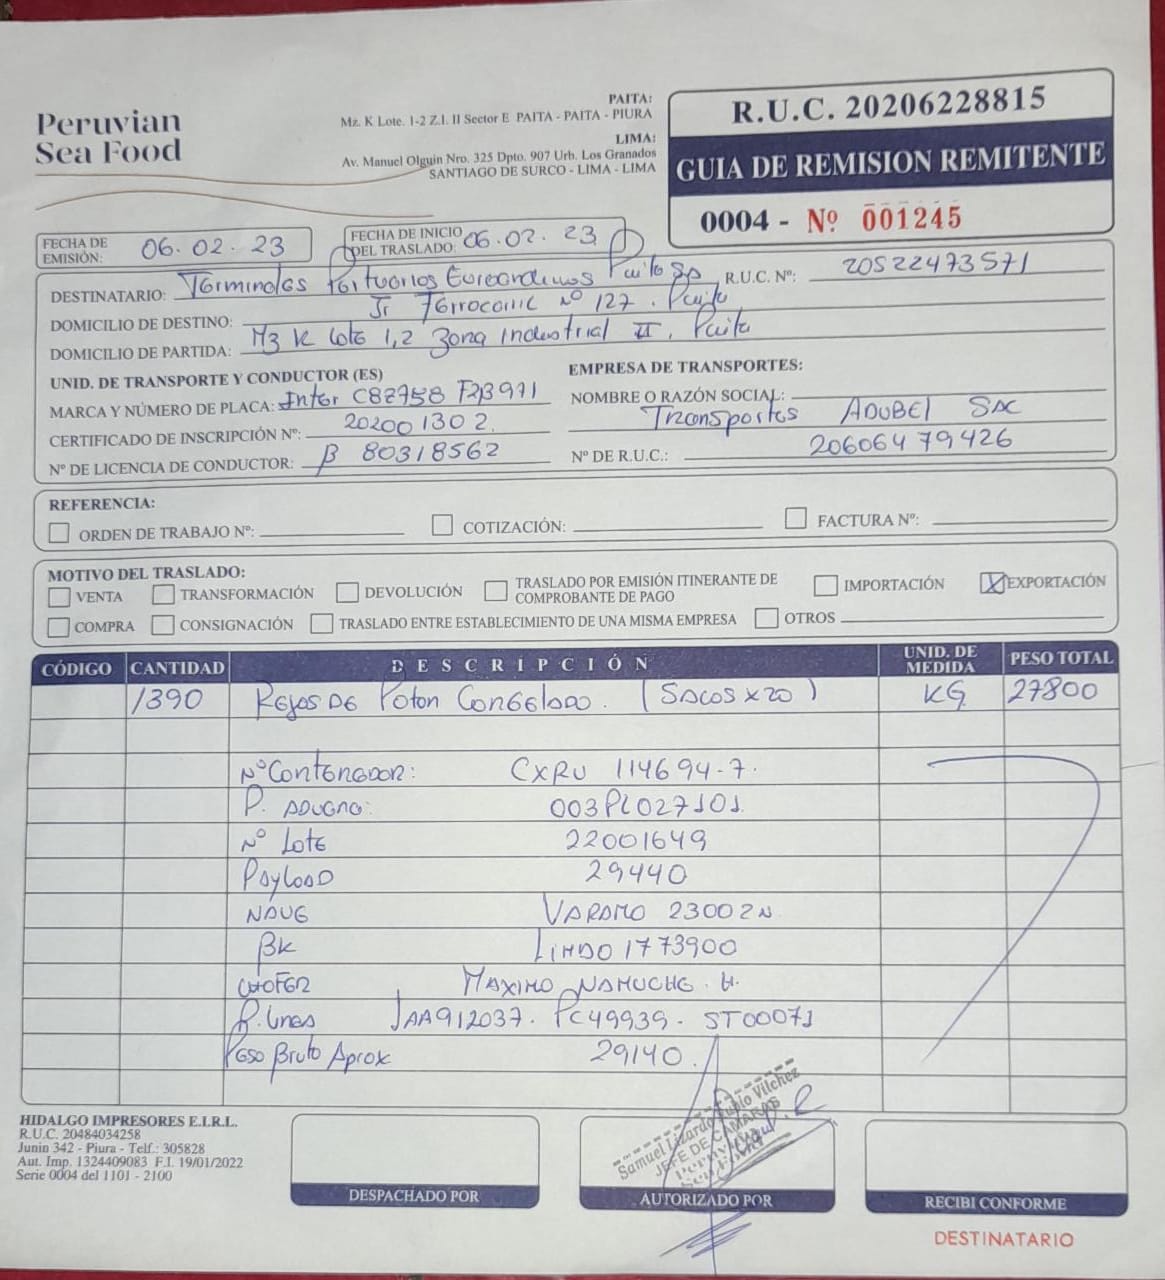 Peruvian
Sea Food
PAITA:
Mz. K Lote. 1-2 Z.I. II Sector E PAITA - PAITA - PIURA
LIMA:
Av. Manuel Olguin Nro. 325 Dpto. 907 Urb. Los Granados
SANTIAGO DE SURCO - LIMA - LIMA
R.U.C. 20206228815
GUIA DE REMISION REMITENTE
0004 - Nº 001245
FECHA DE EMISIÓN: 06.02.23
FECHA DE INICIO DEL TRASLADO: 06.02.23
DESTINATARIO: Terminales Portuarios Euroandinos Paita SA R.U.C. Nº: 20522473571
DOMICILIO DE DESTINO: Jr Ferrocarril Nº 127. Paita
DOMICILIO DE PARTIDA: Mz K Lote 1,2 Zona Industrial II. Paita
UNID. DE TRANSPORTE Y CONDUCTOR (ES)
MARCA Y NÚMERO DE PLACA: Inter C8Z758 F2B971
CERTIFICADO DE INSCRIPCIÓN Nº: 202001302.
Nº DE LICENCIA DE CONDUCTOR: B 80318562
EMPRESA DE TRANSPORTES:
NOMBRE O RAZÓN SOCIAL:
Transportes ADUBEI SAC
Nº DE R.U.C.: 20606479426
REFERENCIA:
ORDEN DE TRABAJO Nº: COTIZACIÓN: FACTURA Nº:
MOTIVO DEL TRASLADO:
VENTA TRANSFORMACIÓN DEVOLUCIÓN TRASLADO POR EMISIÓN ITINERANTE DE COMPROBANTE DE PAGO IMPORTACIÓN X EXPORTACIÓN
COMPRA CONSIGNACIÓN TRASLADO ENTRE ESTABLECIMIENTO DE UNA MISMA EMPRESA OTROS
CÓDIGO CANTIDAD DESCRIPCIÓN UNID. DE MEDIDA PESO TOTAL
1390 Rejos de Poton Congelado. (Sacos x 20) KG 27800
Nº Contenedor: CXRU 114694-7.
P. Aduana: 003PL027101
Nº Lote 22001649
Payload 29440
Nave VARAMO 23002N
BK LIMD01773900
Chofer Maximo Namuche. H.
P. Linea JAA912037. PC49939. ST00071
Peso Bruto Aprox 29140.
HIDALGO IMPRESORES E.I.R.L.
R.U.C. 20484034258
Junin 342 - Piura - Telf.: 305828
Aut. Imp. 1324409083 F.I. 19/01/2022
Serie 0004 del 1101 - 2100
DESPACHADO POR
Samuel Lizardo Vilchez
JEFE DE CAMARAS
AUTORIZADO POR
RECIBI CONFORME
DESTINATARIO